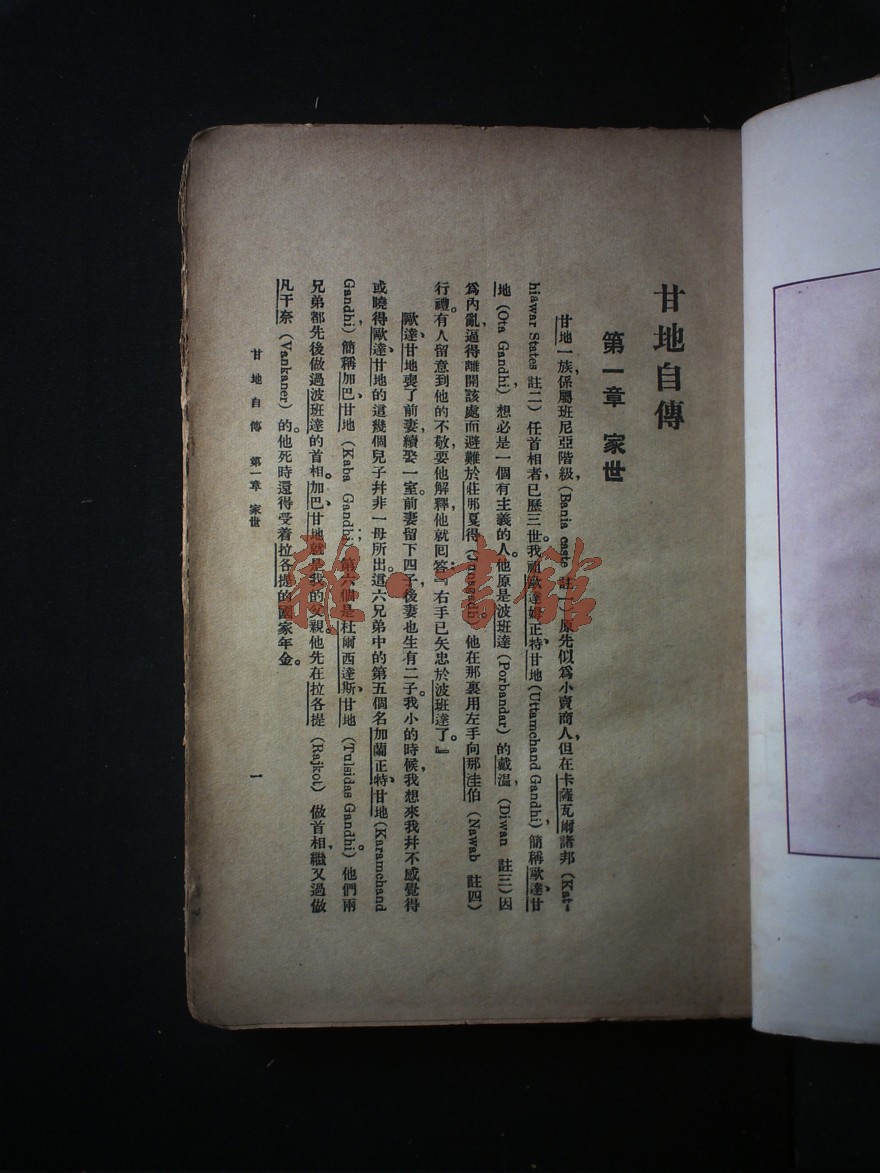 甘地自傳
第一章 家世
甘地一族，係屬班尼亞階級，(Bania caste 註一)原先似爲小賣商人，但在卡薩瓦爾諸邦 (Kat-
hiawar States 註二) 任首相者，已歷三世。我祖歐達姆正特甘地 (Uttamchand Gandhi)，簡稱歐達、甘
地 (Ota Gandhi)，想必是一個有主義的人。他原是波班達 (Porbandar) 的戴溫，(Diwan 註三) 因
爲內亂，逼得離開該處而避難於莊那夏得 (Junagadh)，他在那裏用左手向那洼伯 (Nawab 註四)
行禮。有人留意到他的不敬，要他解釋，他就回答：『右手已矢忠於波班達了。』
歐達、甘地喪了前妻，續娶一室。前妻留下四子，後妻也生有二子。我小的時候，我想來我幷不感覺得
或曉得歐達、甘地的這幾個兒子幷非一母所出。這六兄弟中的第五個名加蘭正特、甘地 (Karamchand
Gandhi)，簡稱加巴、甘地 (Kaba Gandhi)；第六個是杜爾西達斯、甘地 (Tulsidas Gandhi)。他們兩
兄弟都先後做過波班達的首相。加巴、甘地就是我的父親。他先在拉各提 (Rajkot) 做首相，繼又過做
凡干奈 (Vankaner) 的。他死時還得受着拉各提的國家年金。
甘地自傳 第一章 家世
一
雜·書館